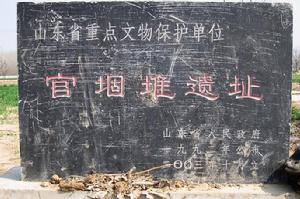 山东省重点文物保护单位
官堌堆遗址
山东省人民政府
一九九二年公布
二〇〇三年十